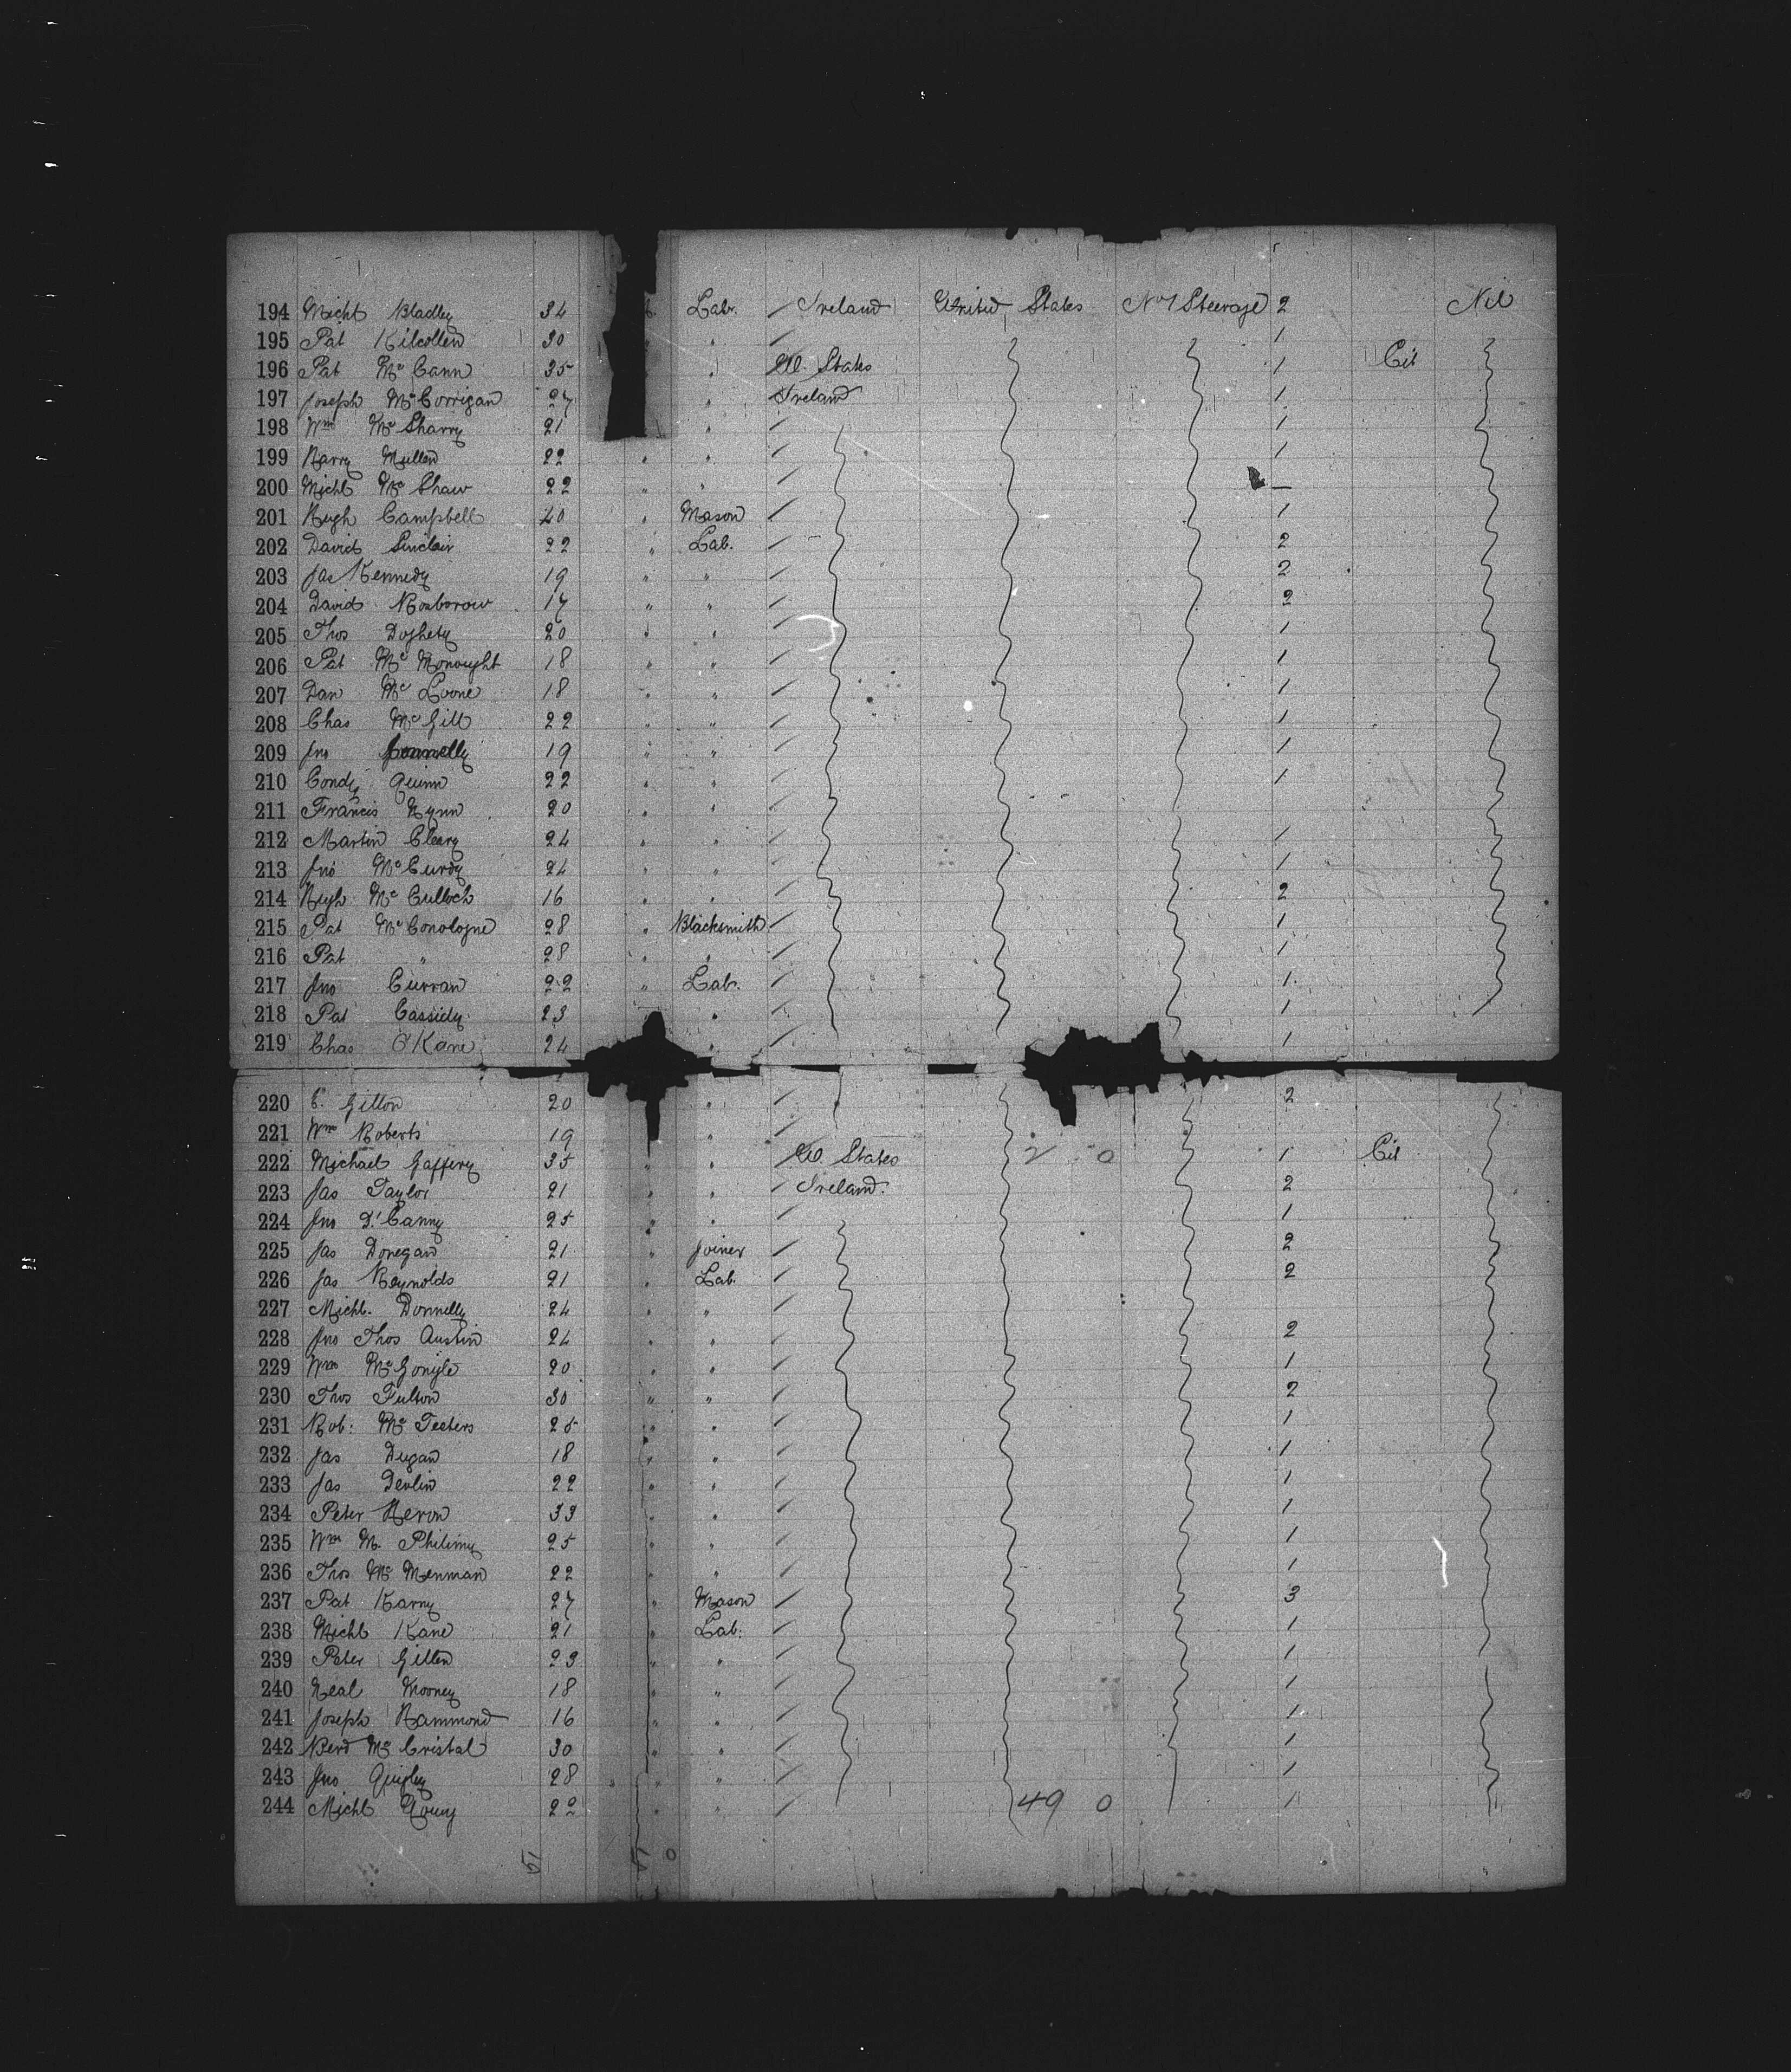 194 Michl Bladley 34 Lab. Ireland United States No 1 Steerage 2 Nil
195 Pat Kilcollen 30 " 1
196 Pat Mc Cann 35 " U. States 1 Cit
197 Joseph McCorrigan 27 " Ireland 1
198 Wm Mc Sharry 21 " 1
199 Harry Mullen 22 " " 1
200 Michl Mc Shaw 22 " " —
201 Hugh Campbell 40 " Mason 1
202 David Sinclair 22 " Lab. 2
203 Jas Kennedy 19 " " 2
204 David Roxborow 17 " " 2
205 Thos Doghety 20 " " 1
206 Pat Mc Monought 18 " " 1
207 Dan Mc Loone 18 " " 1
208 Chas McGill 22 " " 1
209 Jno 19 " " 1
210 Condy Quinn 22 " " 1
211 Francis Hynn 20 " "
212 Martin Cleary 24 " " 1
213 Jno McCurdy 24 " " 1
214 Hugh Mc Culloch 16 " " 2
215 Pat McConologne 28 " Blacksmith 1
216 Pat " 28 " " 1
217 Jno Curran 22 " Lab. 1
218 Pat Cassidy 23 " 1
219 Chas O'Kane 24 " 1
220 E. Gillon 20 " 2
221 Wm Roberts 19 "
222 Michael Gaffery 35 " " U States 2 0 1 Cit
223 Jas Taylor 21 " " Ireland. 2
224 Jno D. Canny 25 " " 1
225 Jas Donegan 21 " Joiner 2
226 Jas Reynolds 21 " Lab. 2
227 Michl. Donnelly 24 " "
228 Jno Thos Austin 24 " " 2
229 Wm McGonigle 20 " " 1
230 Thos Fulton 30 " " 2
231 Rob: Mc Teeters 25 " " 1
232 Jas Dugan 18 " " 1
233 Jas Devlin 22 " " 1
234 Peter Heron 33 " " 1
235 Wm M. Philimy 25 " " 1
236 Thos Mc Menman 22 " " 1
237 Pat Karny 27 " Mason 3
238 Michl Kane 21 " Lab. 1
239 Peter Gillen 23 " " 1
240 Neal Mooney 18 " " 1
241 Joseph Hammond 16 " " 1
242 Berd Mc Cristal 30 " " 1
243 Jno Quigley 28 " " 1
244 Michl 22 " " 49 0 1
51 51 0